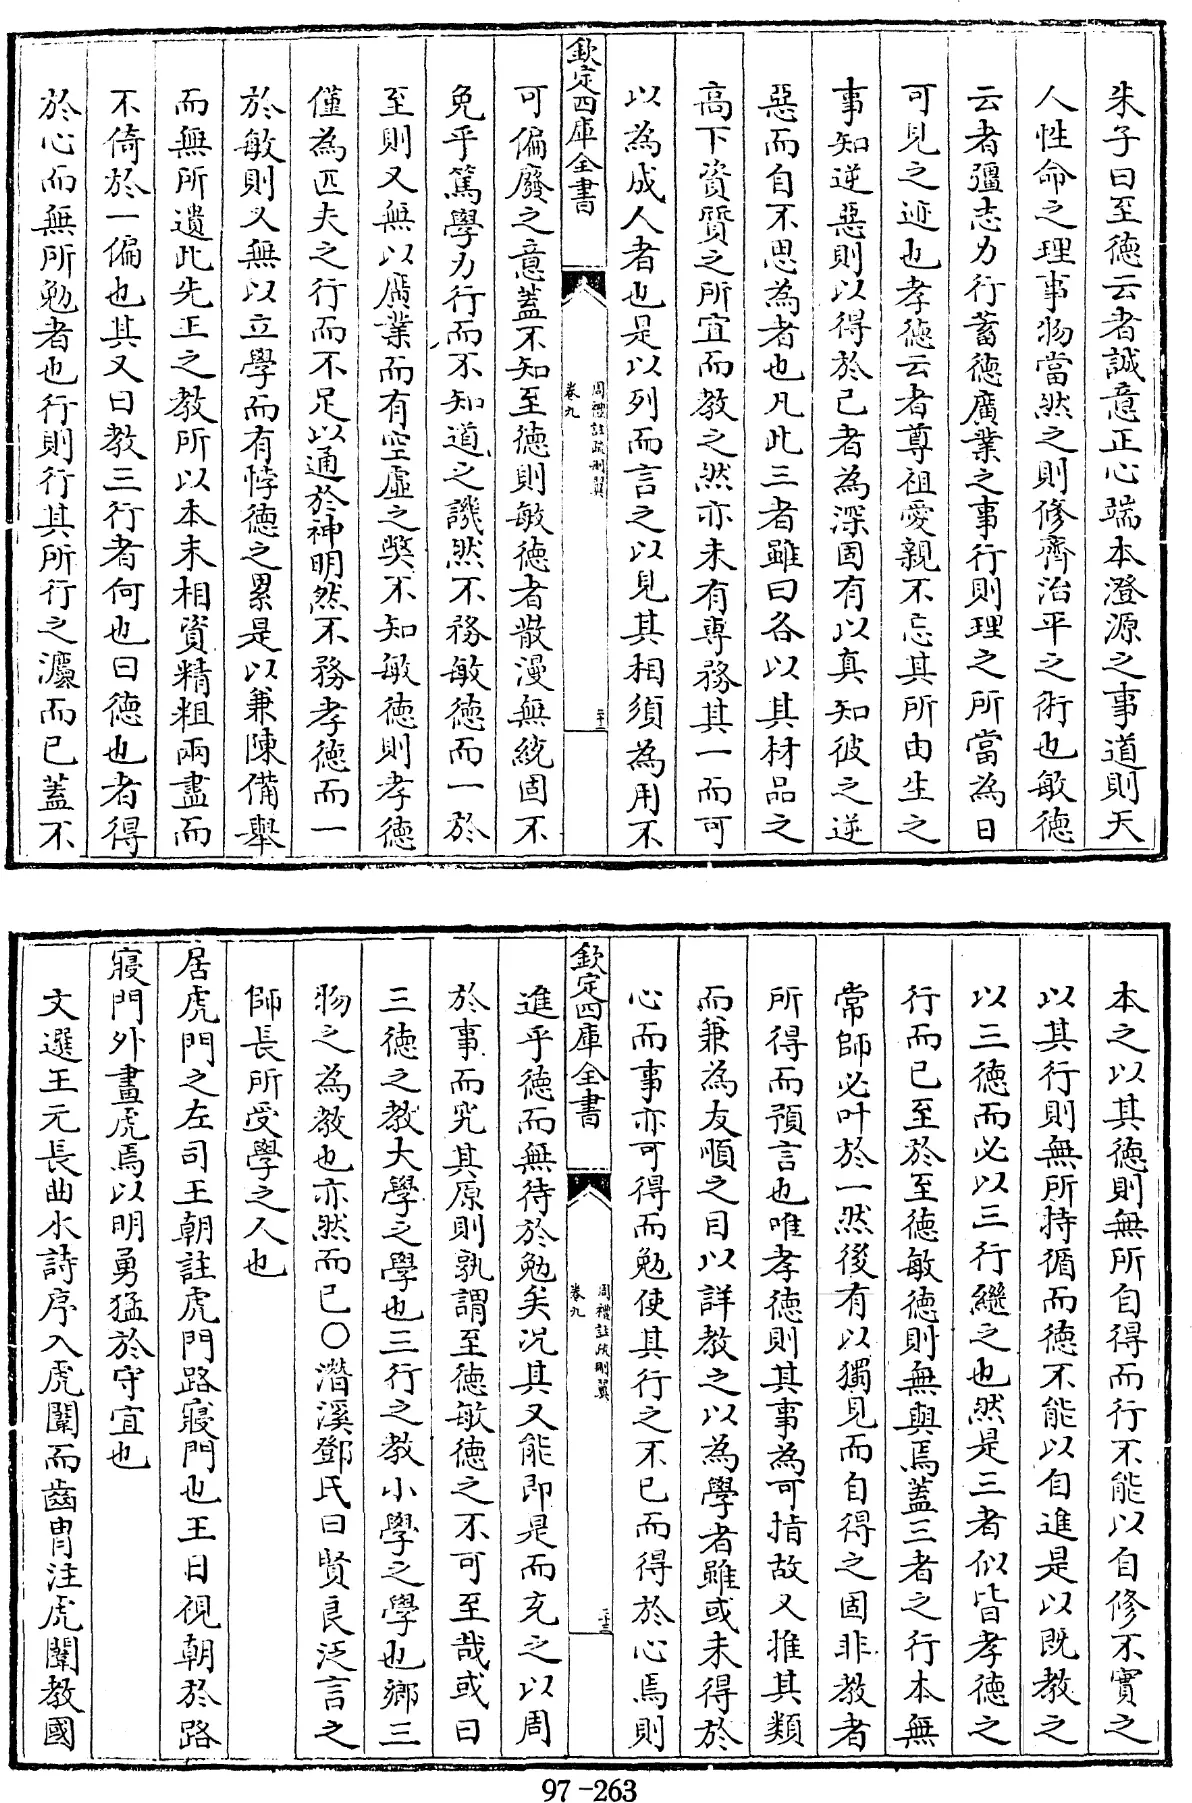 朱子曰至德云者誠意正心端本澄源之事道則天
人性命之理事物當然之則修齊治平之術也敏德
云者彊志力行蓄德廣業之事行則理之所當為日
可見之迹也孝德云者尊祖愛親不忘其所由生之
事知逆惡則以得於己者為深固有以真知彼之逆
惡而自不思為者也凡此三者雖曰各以其材品之
高下資質之所宜而教之然亦未有專務其一而可
以為成人者也是以列而言之以見其相須為用不
欽定四庫全書
周禮註疏刪翼
卷九
二十二
可偏廢之意蓋不知至德則敏德者散漫無統固不
免乎篤學力行而不知道之譏然不務敏德而一於
至則又無以廣業而有空虛之獘不知敏德則孝德
僅為匹夫之行而不足以通於神明然不務孝德而一
於敏則又無以立學而有悖德之累是以兼陳備舉
而無所遺此先王之教所以本末相資精粗兩盡而
不倚於一偏也其又曰教三行者何也曰德也者得
於心而無所勉者也行則行其所行之灋而已蓋不
本之以其德則無所自得而行不能以自修不實之
以其行則無所持循而德不能以自進是以既教之
以三德而必以三行繼之也然是三者似皆孝德之
行而已至於至德敏德則無與焉蓋三者之行本無
常師必叶於一然後有以獨見而自得之固非教者
所得而預言也唯孝德則其事為可指故又推其類
而兼為友順之目以詳教之以為學者雖或未得於
心而事亦可得而勉使其行之不已而得於心焉則
欽定四庫全書
周禮註疏刪翼
卷九
二十三
進乎德而無待於勉矣況其又能即是而充之以周
於事而究其原則孰謂至德敏德之不可至哉或曰
三德之教大學之學也三行之教小學之學也鄉三
物之為教也亦然而已○潛溪鄧氏曰賢良泛言之
師長所受學之人也
居虎門之左司王朝註虎門路寢門也王日視朝於路
寢門外畫虎焉以明勇猛於守宜也
文選王元長曲水詩序入虎闈而齒冑注虎闈教國
97-263